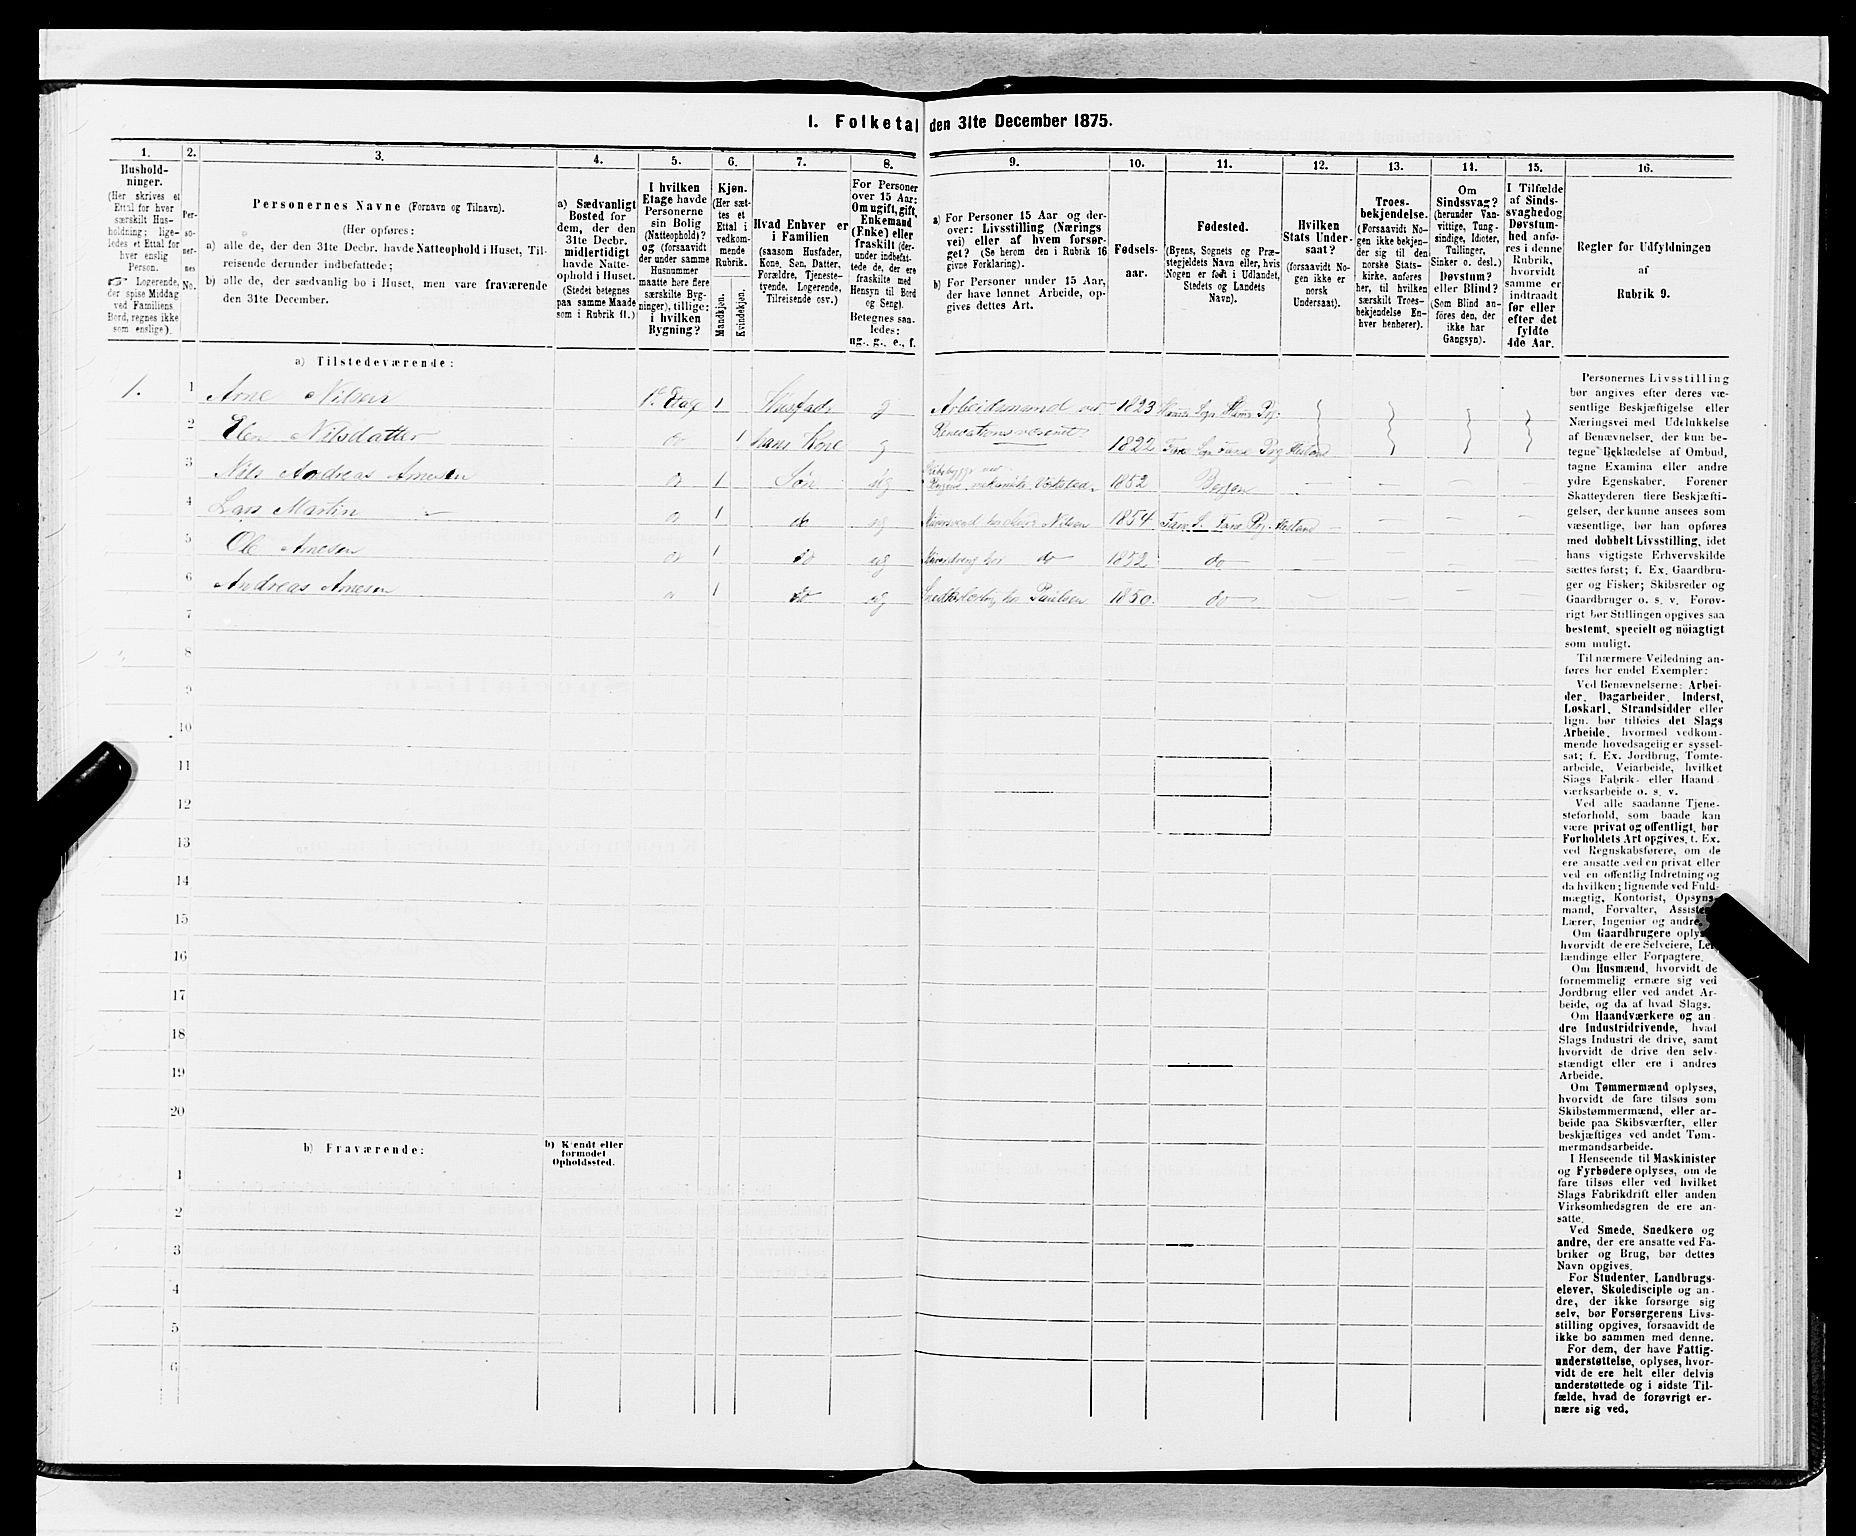 1. Folketal den 31te December 1875.
1.
Hushold-
ninger.
(Her skrives et
Ettal for hver
særskilt Hus-
holdning; lige-
ledes et Ettal for
hver enslig
Person.
Logerende,
der spise Middag
ved Familiens
Bord, regnes ikke
som enslige).
2.
Per-
so-
ner-
nes
No.
3.
Personernes Navne (Fornavn og Tilnavn).
(Her opføres:
a) alle de, der den 31te Decbr. havde Natteophold i Huset, Til-
reisende derunder indbefattede;
b) alle de, der sædvanlig bo i Huset, men vare fraværende
den 31te December.
4.
a) Sædvanligt
Bosted for
dem, der den
31te Decbr.
midlertidigt
havde Natte-
ophold i Huset.
(Stedet betegnes
paa samme Maade
som i Rubrik 11.)
5.
I hvilken
Etage havde
Personerne
sin Bolig
(Natteophold)?
og (forsaavidt
der under samme
Husnummer
maatte høre flere
særskilte Byg-
ninger), tillige:
i hvilken
Bygning?
6.
Kjøn.
(Her sæt-
tes et
Ettal i
vedkom-
mende
Rubrik.
Mandkjøn.
Kvindekjøn.
7.
Hvad Enhver er
i Familien
(saasom Husfader,
Kone, Søn, Datter,
Forældre, Tjeneste-
tyende, Logerende,
Tilreisende osv.)
8.
For Personer
over 15 Aar:
Om ugift, gift,
Enkemand
(Enke) eller
fraskilt (der-
under indbefat-
tede de, der ere
fraskilte med
Hensyn til Bord
og Seng).
Betegnes saa-
ledes:
ug., g., e., f.
9.
a) For Personer 15 Aar og der-
over: Livsstilling (Nærings
vei) eller af hvem forsør-
get? (Se herom den i Rubrik 16
givne Forklaring).
b) For Personer under 15 Aar,
der have lønnet Arbeide, op-
gives dettes Art.
10.
Fødsels-
aar.
11.
Fødested.
(Byens, Sognets og Præ-
stegjeldets Navn eller, hvis
Nogen er født i Udlandet,
Stedets og Landets
Navn).
12.
Hvilken
Stats Under-
saat?
(forsaavidt No-
gen ikke er
norsk
Undersaat).
13.
Troes-
bekjendelse.
(Forsaavidt No-
gen ikke bekjen-
der sig til den
norske Stats-
kirke, anføres
her, til hvilken
særskilt Troes-
bekjendelse En-
hver henhører).
14.
Om
Sindssvag?
(herunder Van-
vittige, Tung-
sindige, Idioter,
Tullinger,
Sinker o. desl.)
Døvstum?
eller Blind?
(Som Blind an-
føres den, der
ikke har
Gangsyn).
15.
I Tilfælde
af Sinds-
svaghed og
Døvstum-
hed anfø-
res i denne
Rubrik,
hvorvidt
samme er
indtraadt
før eller
efter det
fyldte
4de Aar.
16.
Regler for Udfyldningen
af
Rubrik 9.
a) Tilstedeværende:
1. 1 Arne Nilsen 1e Etage 1 Husfader g Arbeidsmand ved 1823
2 Elen Nilsdatter do 1 Hans Kone g Renovationsvæsenet 1822
3 Nils Andreas Arnesen do 1 Søn ug 1852 Bergen — — — —
4 Lars Martin — do 1 do ug 1854 — — — —
5 Ole Arnesen do 1 do ug do 1852 do — — — —
6 Andreas Arnesen do 1 do ug 1850. do — — —
7
8
9
10
11
12
13
14
15
16
17
18
19
20
b) Fraværende:
b) Kjendt eller
formodet
Opholdssted.
1
2
3
4
5
6
Personernes Livsstilling
bør angives efter deres væ-
sentlige Beskjæftigelse eller
Næringsvei med Udelukkelse
af Benævnelser, der kun be-
tegne Beklædelse af Ombud,
tagne Examina eller andre
ydre Egenskaber. Forener
Skatteyderen flere Beskjæfti-
gelser, der kunne ansees som
væsentlige, bør han opføres
med dobbelt Livsstilling, idet
hans vigtigste Erhvervskilde
sættes først; f. Ex. Gaardbru-
ger og Fisker; Skibsreder og
Gaardbruger o. s. v. Forøv-
rigt bør Stillingen opgives saa
bestemt, specielt og nöiagtigt
som muligt.
Til nærmere Veiledning an-
føres her endel Exempler:
Ved Benævnelserne: Arbei-
der, Dagarbeider, Inderst,
Løskarl, Strandsidder eller
lign. bør tilføies det Slags
Arbeide, hvormed vedkom-
mende hovedsagelig er syssel-
sat; f. Ex. Jordbrug, Tomte-
arbeide, Veiarbeide, hvilket
Slags Fabrik- eller Haand-
værksarbeide o. s. v.
Ved alle saadanne Tjene-
steforhold, som baade kan
være privat og offentligt, bør
Forholdets Art opgives, f. Ex.
ved Regnskabsførere, om de
ere ansatte ved en privat eller
ved en offentlig Indretning og
da hvilken; lignende ved Fuld-
mægtig, Kontorist, Opsyns-
mand, Forvalter,
Lærer, Ingeniør og andre.
Om Gaardbrugere
hvorvidt de ere Selveiere,
lændinge eller Forpagtere.
Om Husmænd, hvorvidt de
fornemmelig ernære sig ved
Jordbrug eller ved andet Ar-
beide, og da af hvad Slags.
Om Haandværkere og an-
dre Industridrivende, hvad
Slags Industri de drive, samt
hvorvidt de drive den selv-
stændigt eller ere i andres
Arbeide.
Om Tømmermænd oplyses,
hvorvidt de fare tilsøs som
Skibstømmermænd, eller ar-
beide paa Skibsværfter, eller
beskjæftiges ved andet Tøm-
mermandsarbeide.
I Henseende til Maskinister
og Fyrbødere oplyses, om de
fare tilsøs eller ved hvilket
Slags Fabrikdrift eller anden
Virksomhedsgren de ere an-
satte.
Ved Smede, Snedkere og
andre, der ere ansatte ved Fa-
briker og Brug, bør dettes
Navn opgives.
For Studenter, Landbrugs-
elever, Skoledisciple og an-
dre, der ikke forsørge sig
selv, bør Forsørgerens Livs-
stilling opgives, forsaavidt de
ikke bo sammen med denne.
For dem, der have Fattig-
understøttelse, oplyses, hvor-
vidt de ere helt eller delvis
understøttede og i sidste Til-
fælde, hvad de forøvrigt er-
nære sig ved.